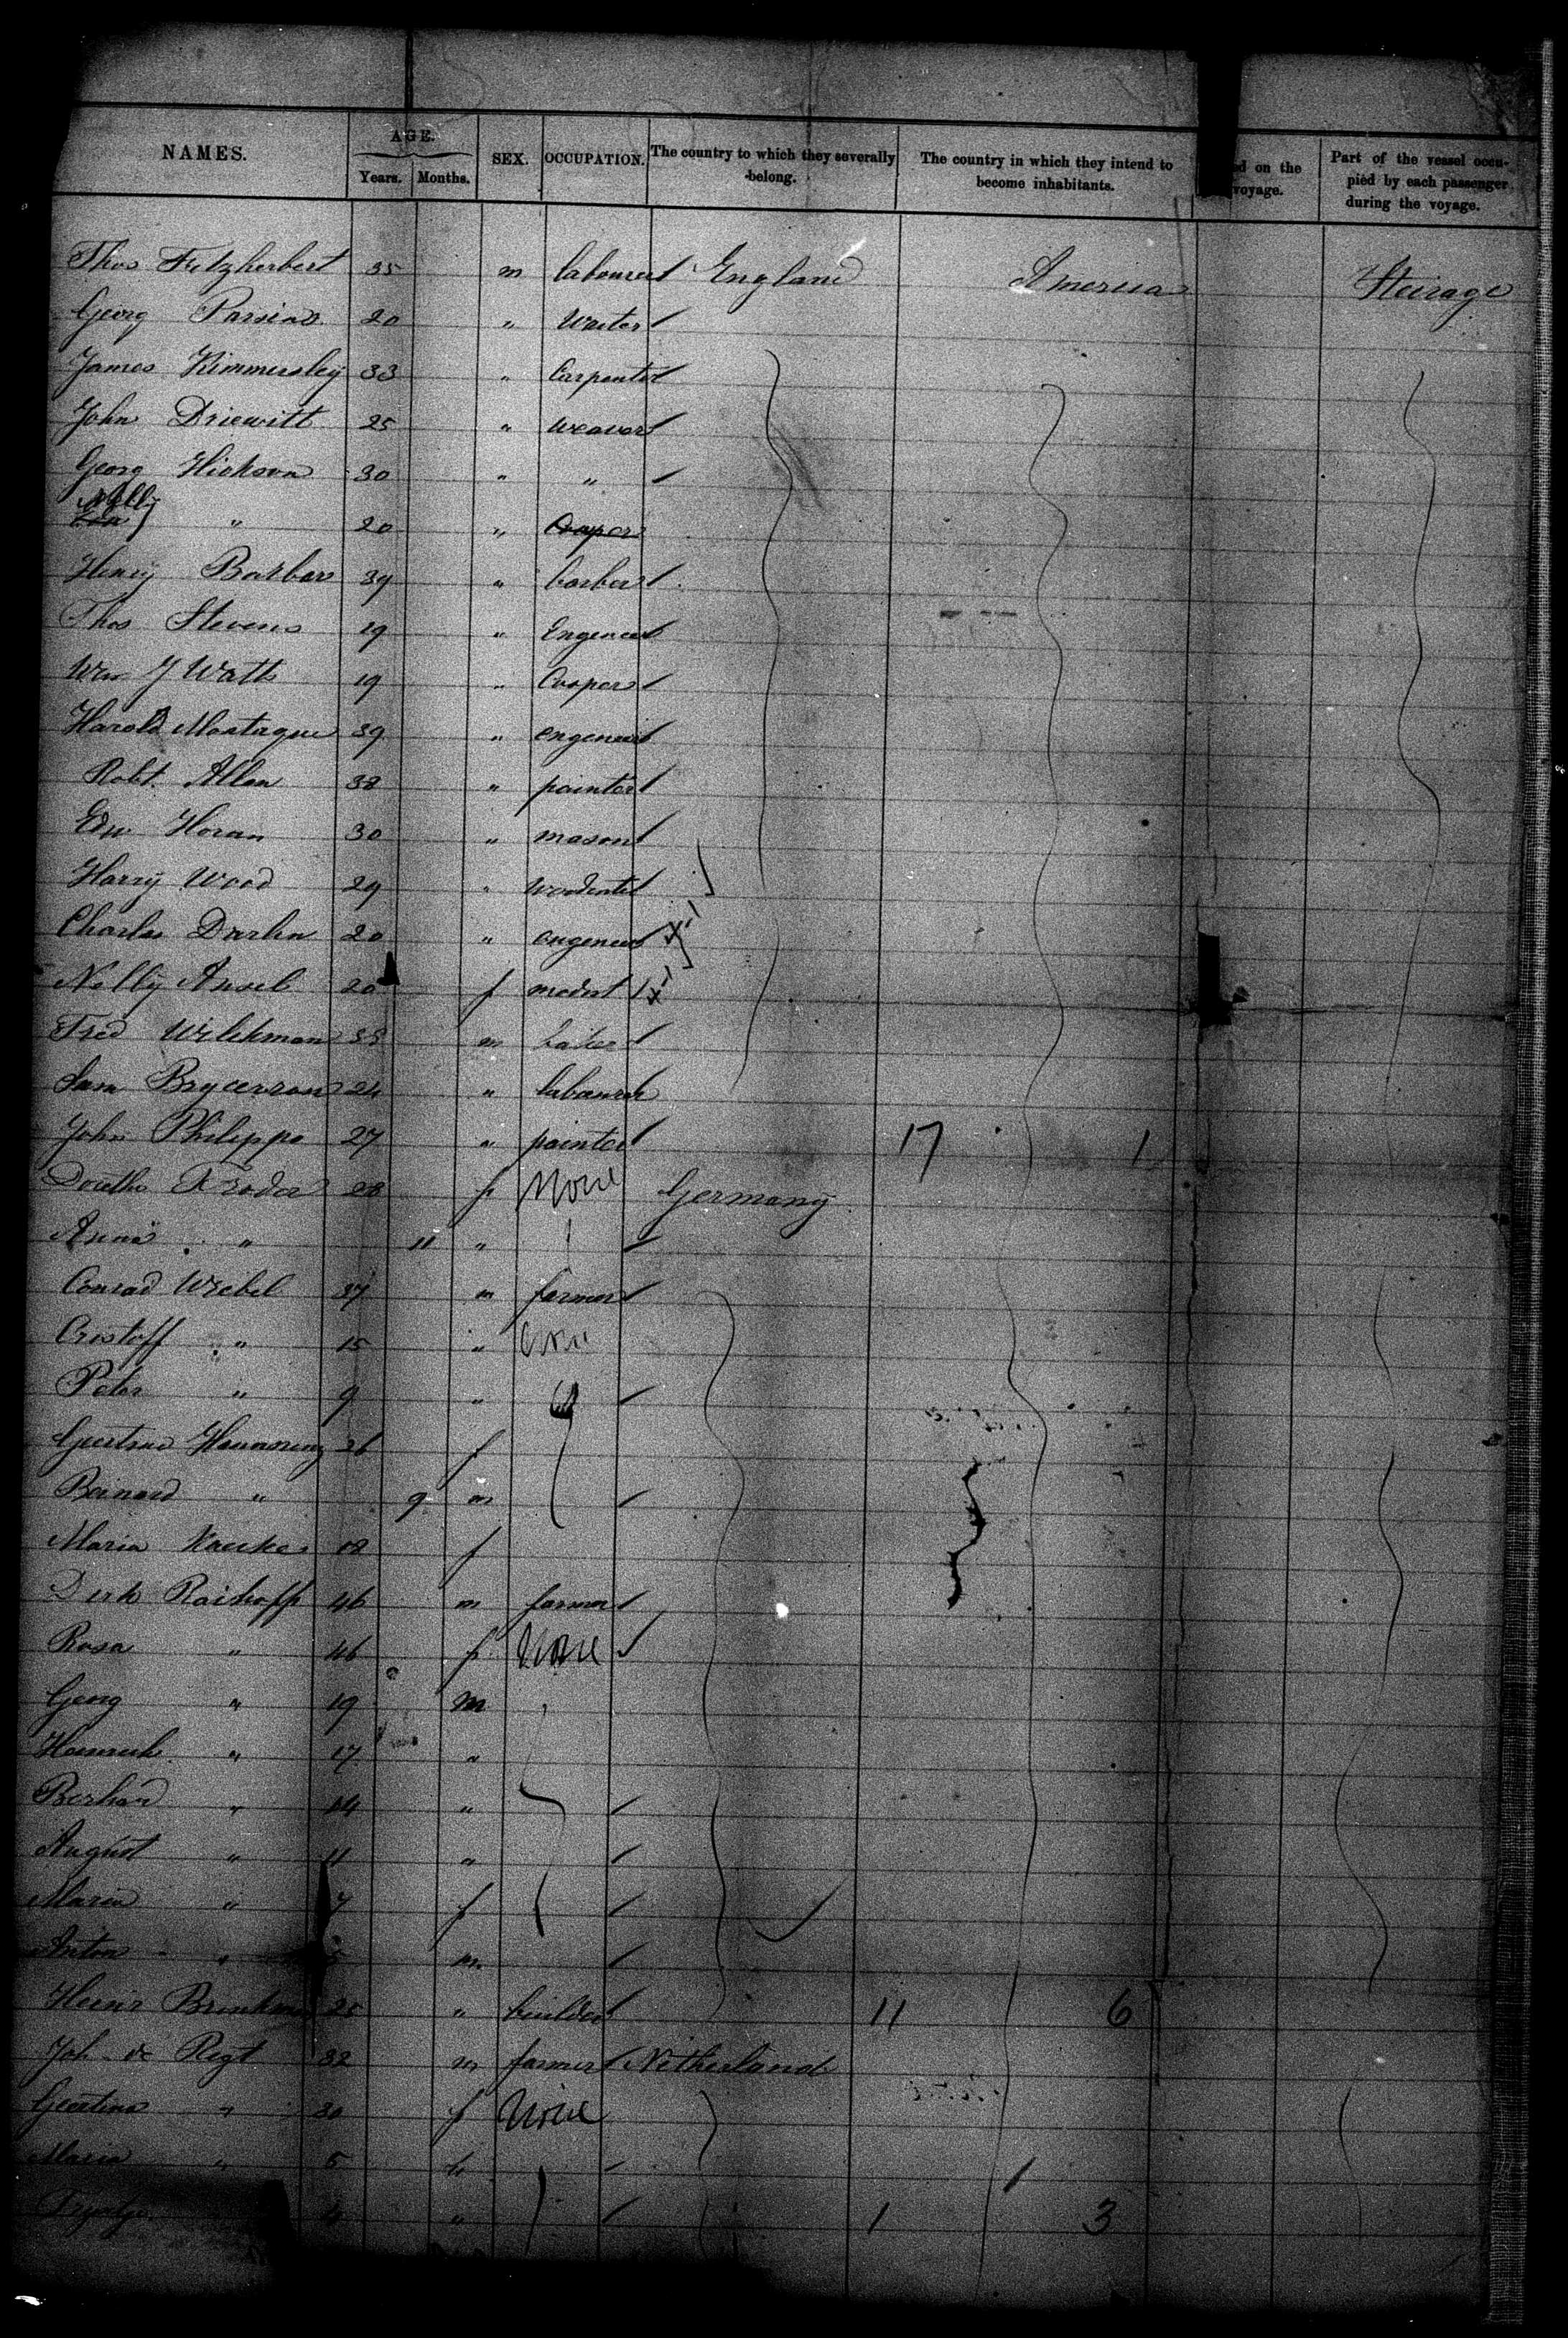 NAMES. AGE. Years. Months. SEX. OCCUPATION. The country to which they severally belong. The country in which they intend to become inhabitants. ed on the voyage. Part of the vessel occupied by each passenger during the voyage.
Thos Fitzherbert 35 m labourer England America Steirage
Georg Parsino 20 " Waiter
James Kimmersley 33 " Carpenter
John Driewitt 25 " weaver
Georg Hickson 30 " "
Nelly " 20 " Cooper
Henry Barber 39 " barber
Thos Stevens 19 " Engeneer
Wm J Watts 19 " Cooper
Harold Montague 39 " engeneer
Robt. Allen 38 " painter
Edw Horan 30 " mason
Harry Wood 29 "
Charles Darlin 20 " engeneer
Nelly Ansel 20 f modist
Fred 35 m baker
Sam 24 " labourer
John Philippo 27 " painter 17 1
28 f None Germany
Anna " 11 "
Conrad Wrebel 37 m farmer
Cristoff " 15 " None
Peter " 9 "
26 f
Bernard " 9 m
Maria 18 f
Dirk Raikoff 46 m farmer
Rosa " 46 f None
Georg " 19 m
Heinrich " 17 "
" 14 "
August " 11 "
Maria " 7 f
Anton " m
Heinr 25 " builder 11 6
Joh de Regt 32 m farmer Netherland
Geertina " 30 f None
Maria " 5 "
4 " 1 3